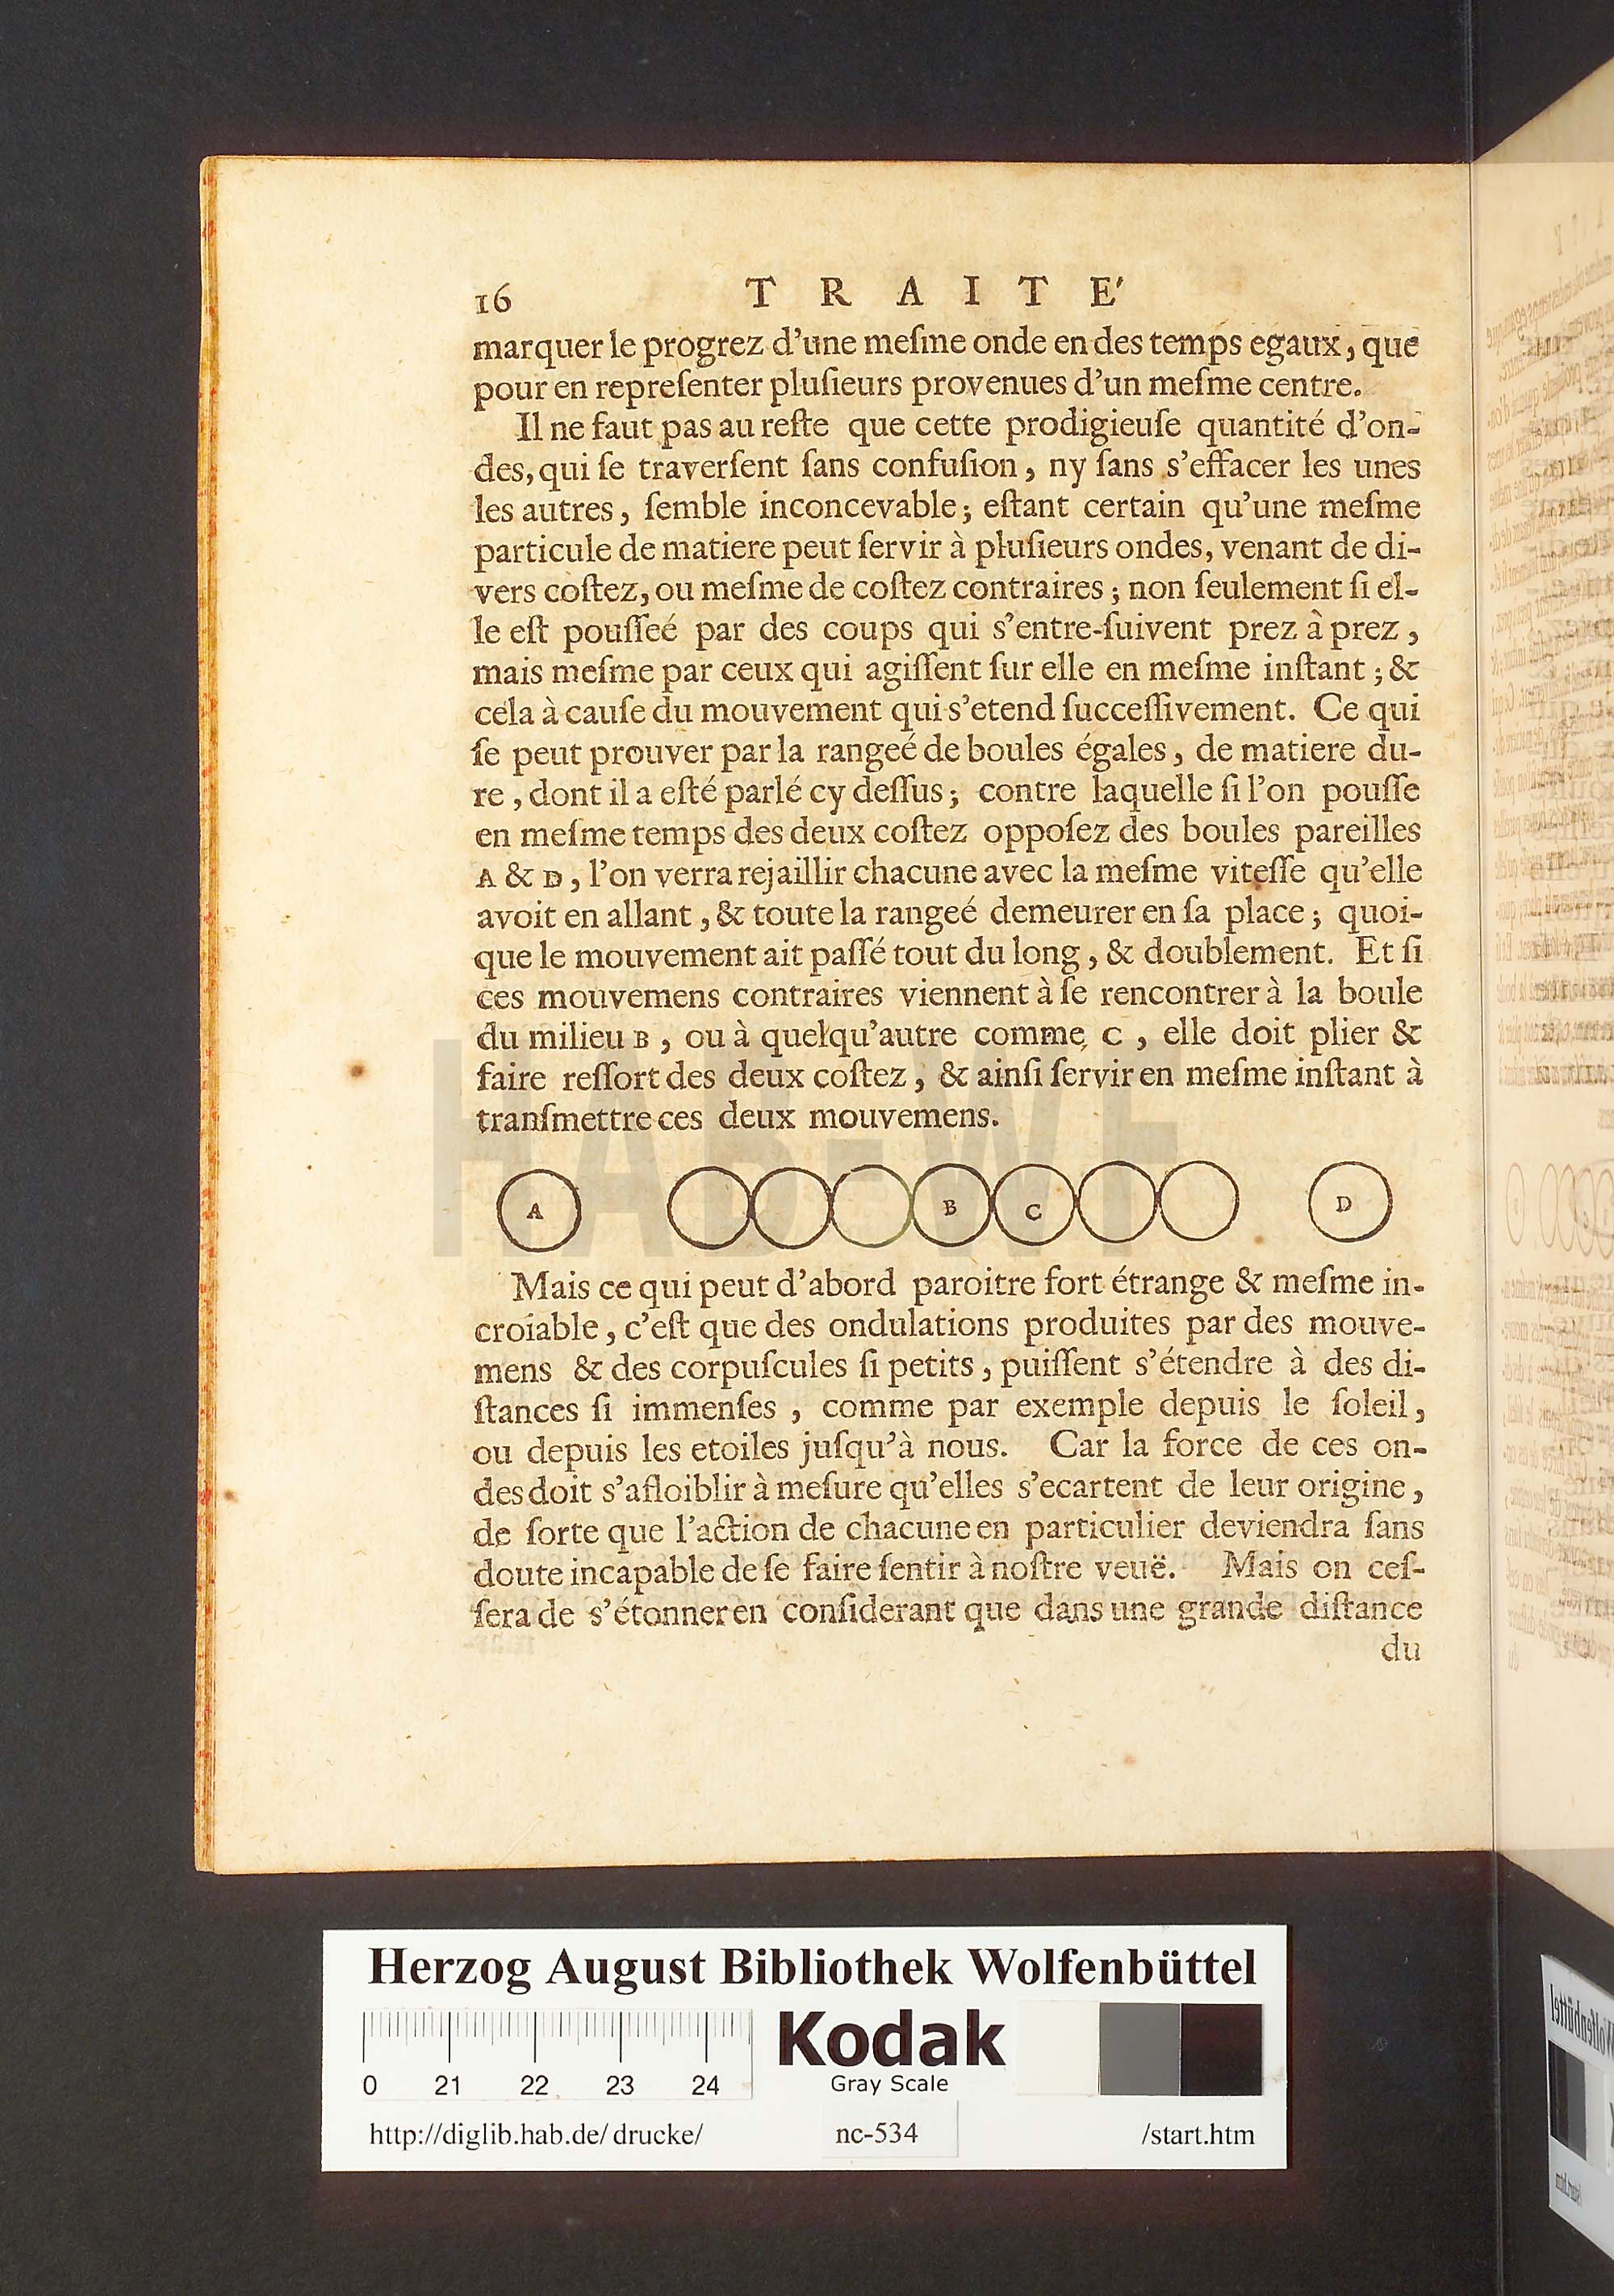 16 TRAITE'
marquer le progrez d'une meſme onde en des temps egaux, que
pour en repreſenter pluſieurs provenues d'un meſme centre.
Il ne faut pas au reſte que cette prodigieuſe quantité d'on-
des, qui ſe traverſent ſans confuſion, ny ſans s'effacer les unes
les autres, ſemble inconcevable; eſtant certain qu'une meſme
particule de matiere peut ſervir à pluſieurs ondes, venant de di-
vers coſtez, ou meſme de coſtez contraires; non ſeulement ſi el-
le eſt pouſſeé par des coups qui s'entre-ſuivent prez à prez,
mais meſme par ceux qui agiſſent ſur elle en meſme inſtant; &
cela à cauſe du mouvement qui s'etend ſucceſſivement. Ce qui
ſe peut prouver par la rangeé de boules égales, de matiere du-
re, dont il a eſté parlé cy deſſus; contre laquelle ſi l'on pouſſe
en meſme temps des deux coſtez oppoſez des boules pareilles
A & D, l'on verra rejaillir chacune avec la meſme viteſſe qu'elle
avoit en allant, & toute la rangeé demeurer en ſa place; quoi-
que le mouvement ait paſſé tout du long, & doublement. Et ſi
ces mouvemens contraires viennent à ſe rencontrer à la boule
du milieu B, ou à quelqu'autre comme C, elle doit plier &
faire reſſort des deux coſtez, & ainſi ſervir en meſme inſtant à
tranſmettre ces deux mouvemens.
A B C D
Mais ce qui peut d'abord paroitre fort étrange & meſme in-
croiable, c'eſt que des ondulations produites par des mouve-
mens & des corpuſcules ſi petits, puiſſent s'étendre à des di-
ſtances ſi immenſes, comme par exemple depuis le ſoleil,
ou depuis les etoiles juſqu'à nous. Car la force de ces on-
des doit s'afloiblir à meſure qu'elles s'ecartent de leur origine,
de ſorte que l'action de chacune en particulier deviendra ſans
doute incapable de ſe faire ſentir à noſtre veuë. Mais on ceſ-
ſera de s'étonner en conſiderant que dans une grande diſtance
du
HAB-WF
Herzog August Bibliothek Wolfenbüttel
Kodak
Gray Scale
0 21 22 23 24
http://diglib.hab.de/drucke/ nc-534 /start.htm